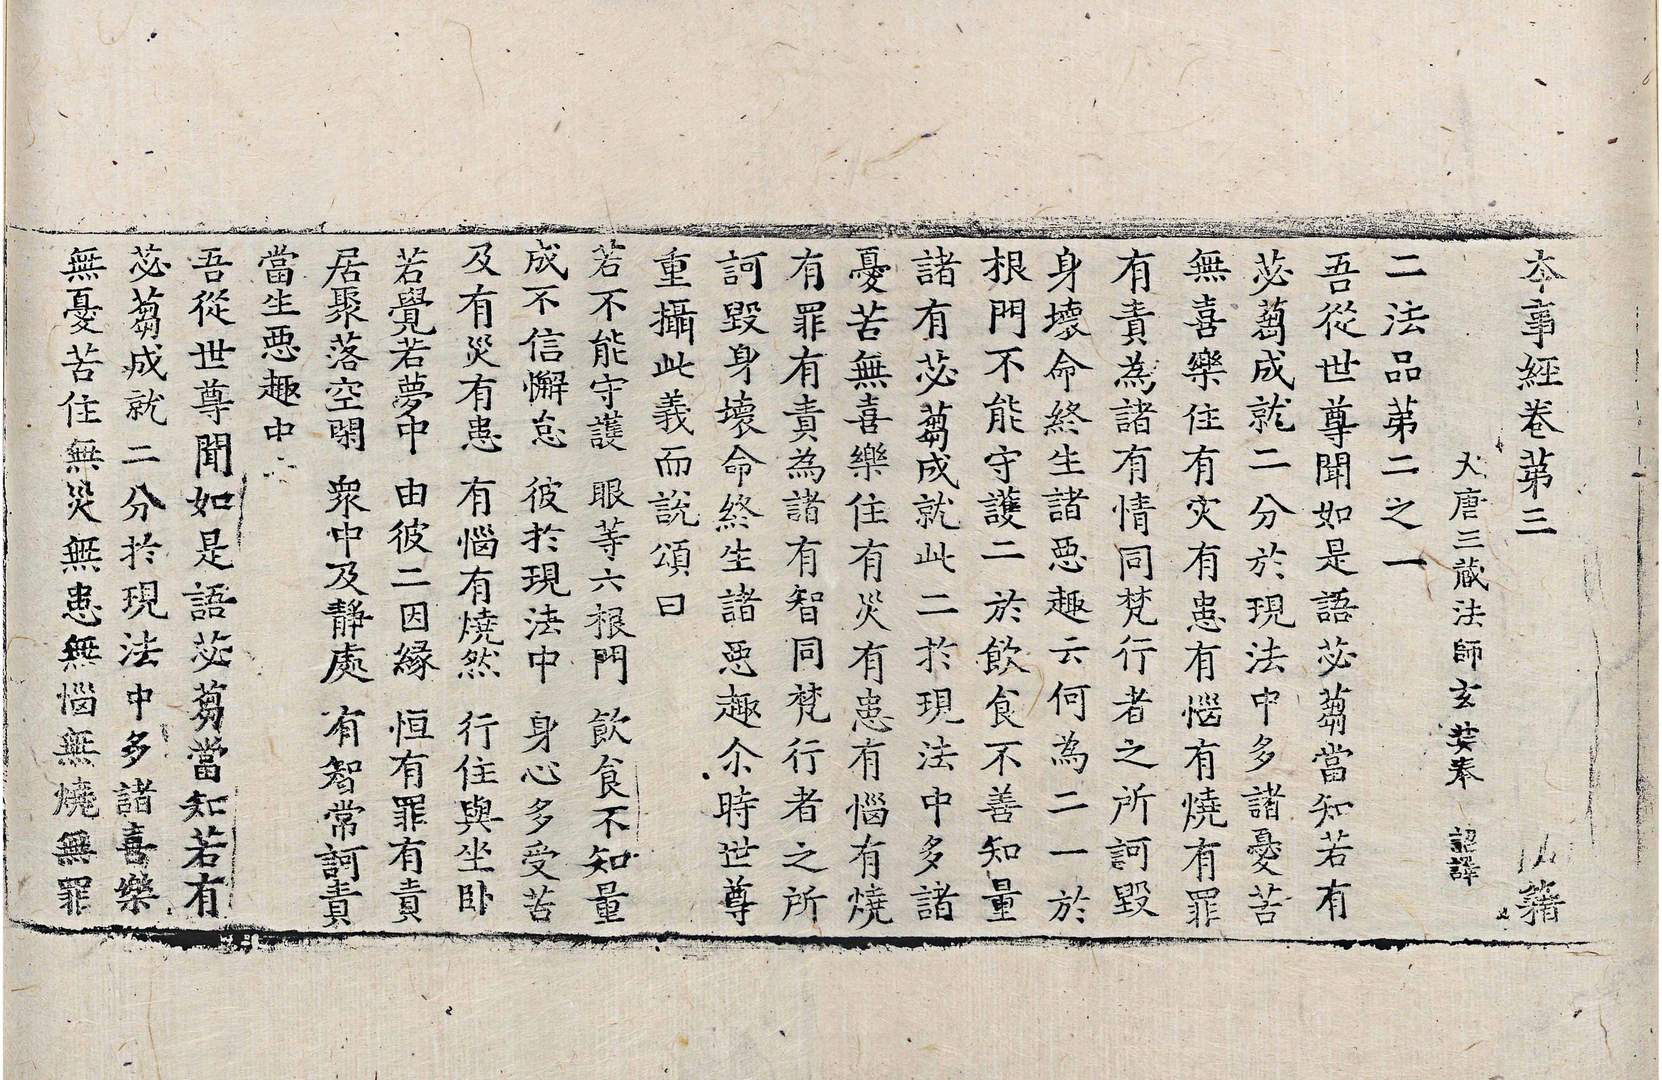 本事經卷第三 籍
大唐三藏法師玄奘奉 詔譯
二法品第二之一
吾從世尊聞如是語苾蒭當知若有
苾蒭成就二分於現法中多諸憂苦
無喜樂住有灾有恚有惱有燒有罪
有責為諸有情同梵行者之所訶毀
身壞命終生諸惡趣云何為二一於
根門不能守護二於飲食不善知量
諸有苾蒭成就此二於現法中多諸
憂苦無喜樂住有災有恚有惱有燒
有罪有責為諸有智同梵行者之所
訶毀身壞命終生諸惡趣尒時世尊
重攝此義而說頌曰
若不能守護 眼等六根門 飲食不知量
成不信懈怠 彼於現法中 身心多受苦
及有災有恚 有惱有燒然 行住與坐臥
若覺若夢中 由彼二因緣 恒有罪有責
居聚落空閑 衆中及靜處 有智常訶責
當生惡趣中
吾從世尊聞如是語苾蒭當知若有
苾蒭成就二分於現法中多諸喜樂
無憂苦住無災無恚無惱無燒無罪